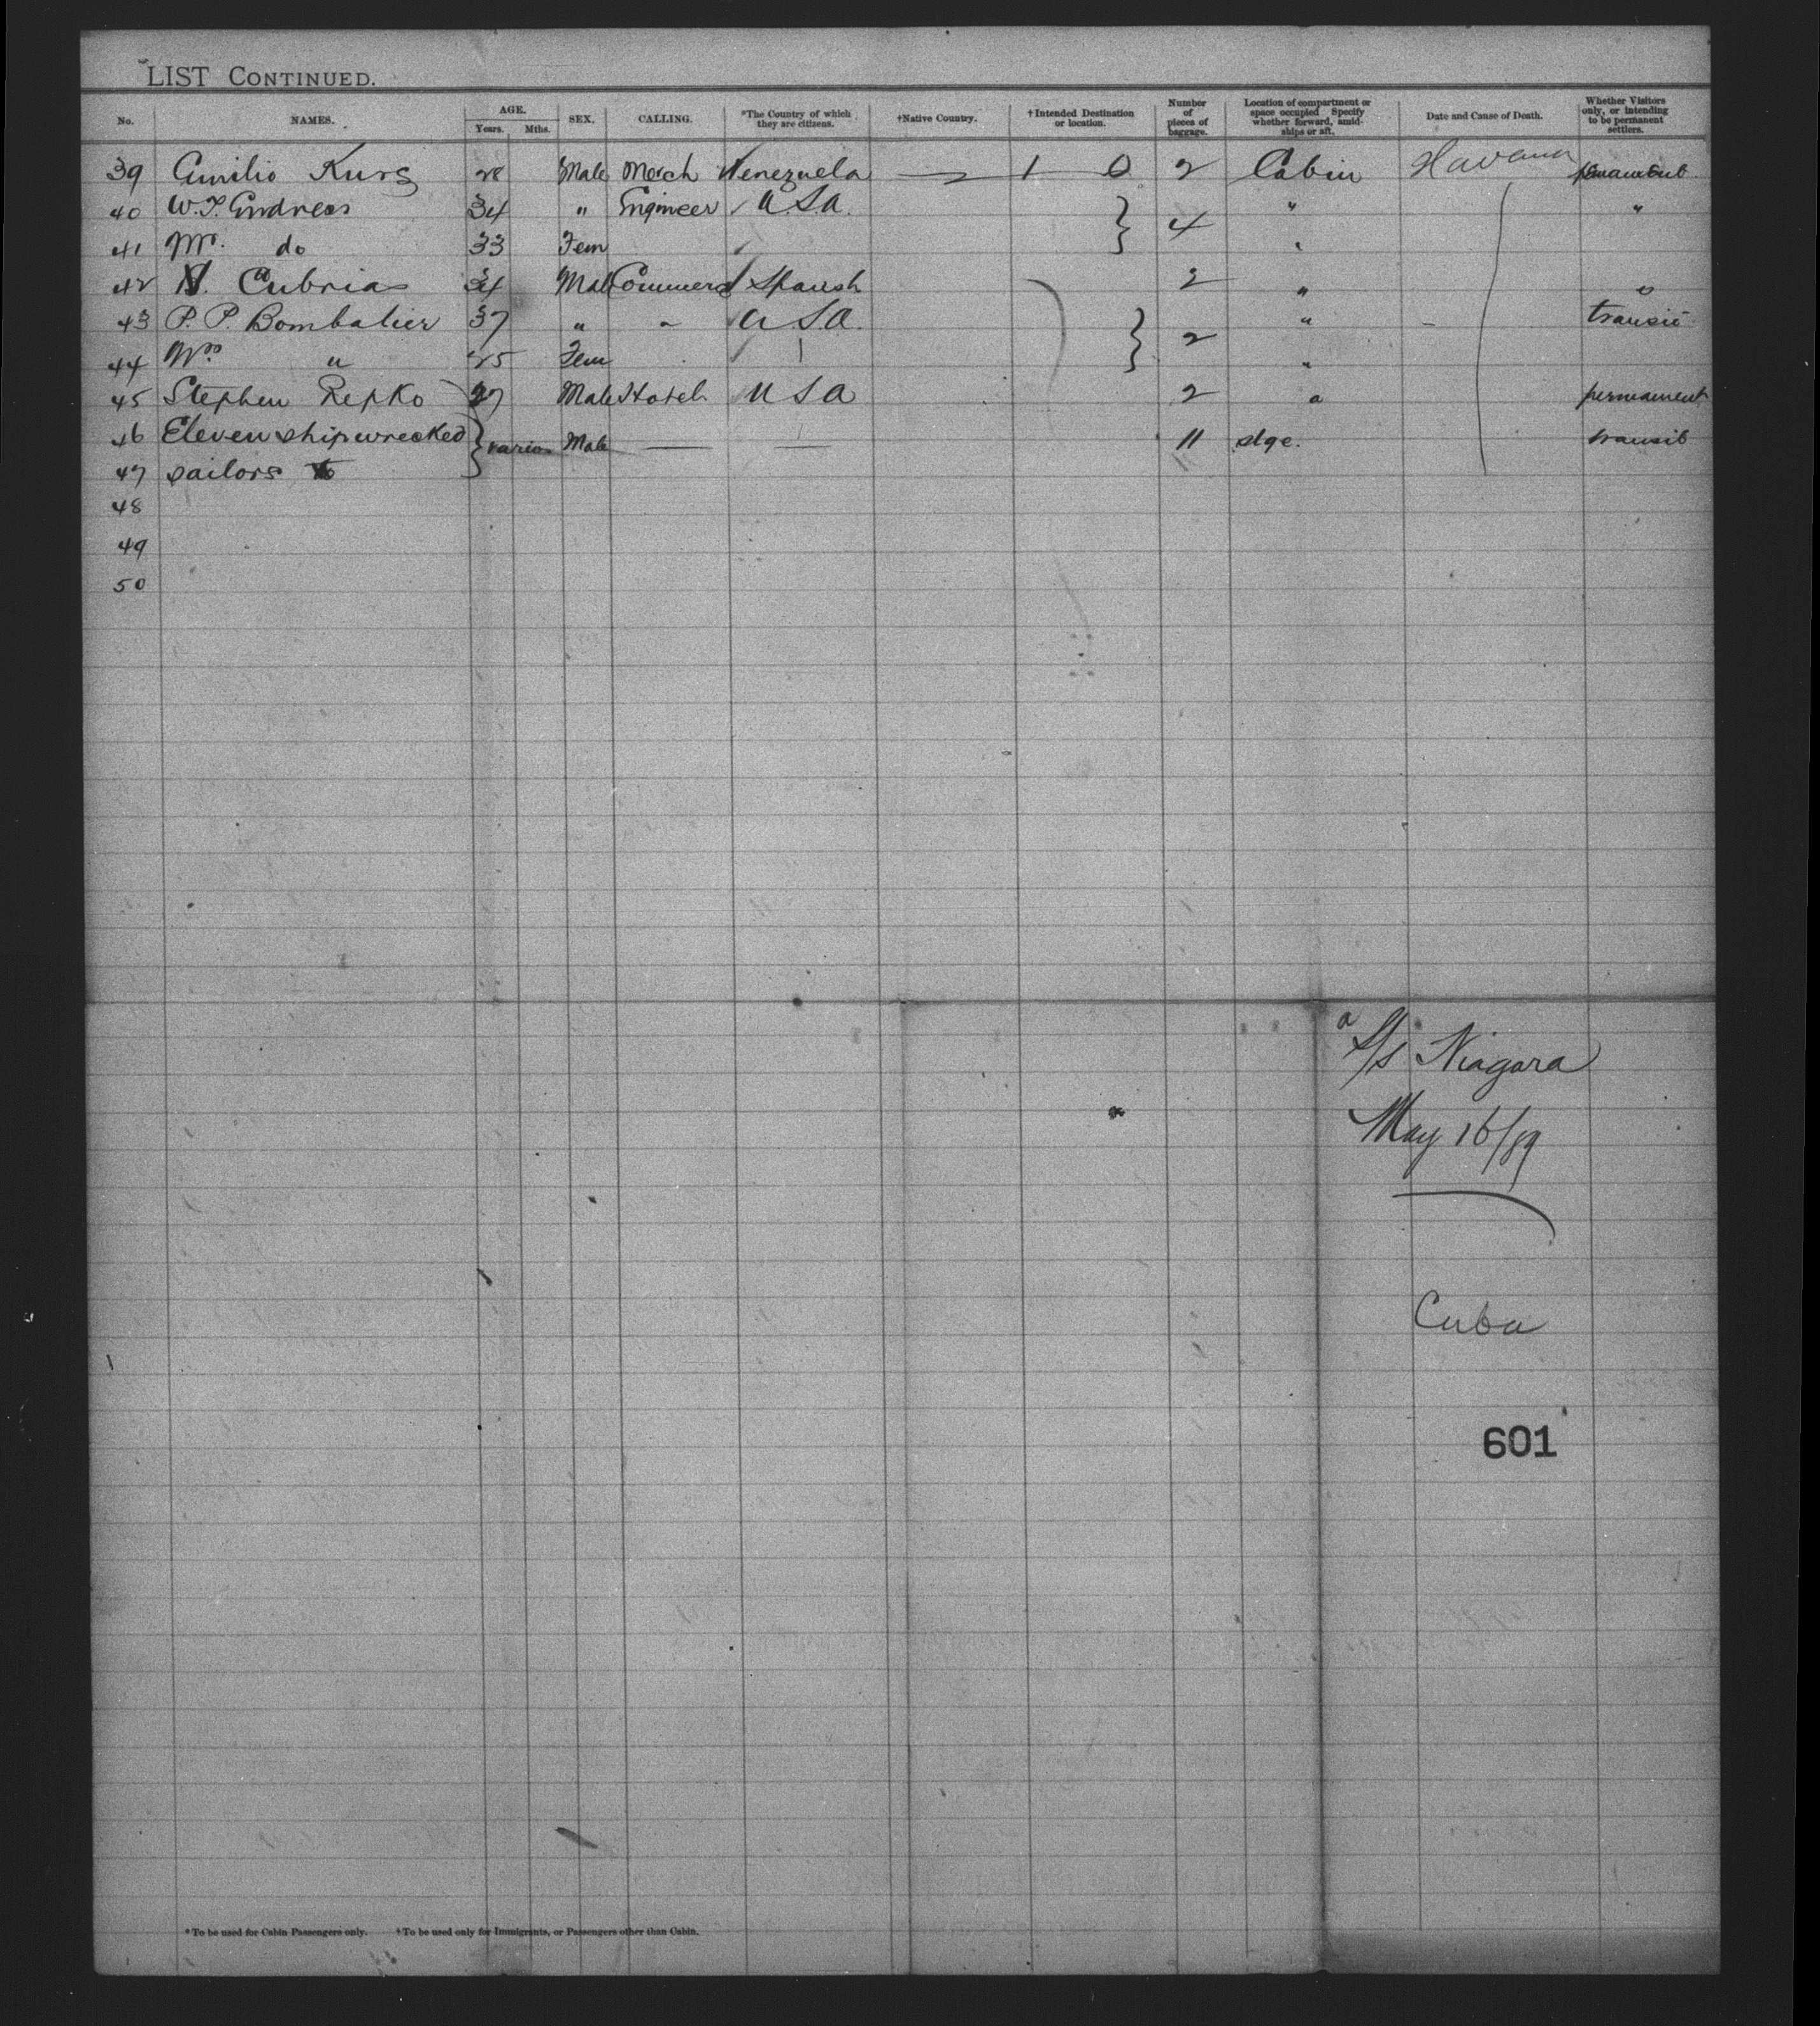 LIST CONTINUED.
No. NAMES. AGE. Years. Mths. SEX. CALLING. *The Country of which they are citizens. †Native Country. †Intended Destination or location. Number of pieces of baggage. Location of compartment or space occupied Specify whether forward, amidships or aft. Date and Cause of Death. Whether Visitors only, or intending to be permanent settlers.
39 Emilio 28 Male Merch Venezuela 2 Cabin Havana permanent
40 34 " Engineer U.S.A. } 4 " "
41 Mrs. do 33 Fem
42 Cubria 34 Male Spanish 2 "
43 P. P. Bombalier 37 " " U S A. } 2 " transit
44 Mrs " 25 Fem "
45 Stephen Repko 27 Male Hotel U S A 2 " permanent
46 Eleven shipwrecked } Male — — 11 stge. transit
47 sailors
48
49
50
S/S Niagara
May 16/89
Cuba
601
*To be used for Cabin Passengers only. †To be used only for Immigrants, or Passengers other than Cabin.